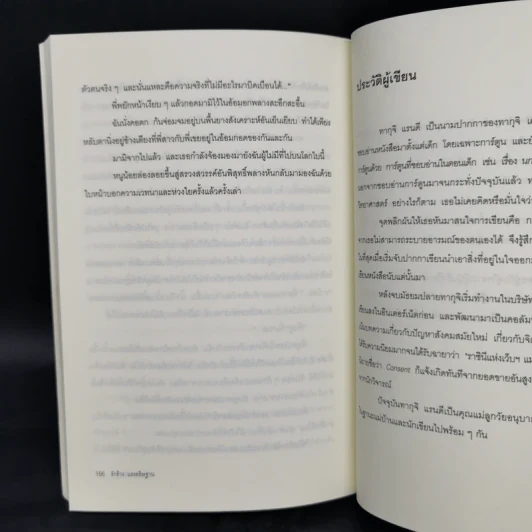 ตัวตนจริง ๆ และนั่นแหละคือความจริงที่ไม่มีอะไรมาบิดเบือนได้..."
พี่พยักหน้าเงียบ ๆ แล้วกอดมามิไว้ในอ้อมอกพลางสะอึกสะอื้น
ฉันนั่งคอตก
หลุบตานิ่งอยู่ข้างเตียงที่พี่สาวกับพี่เขยอยู่ในอ้อมกอดของกันและกัน
มามิจากไปแล้ว และเธอกำลังจ้องมองมายังฉันผู้ไม่มีที่ไปบนโลกใบนี้
หนูน้อยล่องลอยขึ้นสู่สรวงสวรรค์อันพิสุทธิ์พลางหันกลับมามองฉันด้วย
ใบหน้าบอกความเวทนาและห่วงใยครั้งแล้วครั้งเล่า
186
ประวัติผู้เขียน
ทากุจิ แรนดี เป็นนามปากกาของทากุจิ
ชอบอ่านหนังสือมาตั้งแต่เด็ก โดยเฉพาะการ์ตูน และ
การ์ตูนด้วย การ์ตูนที่ชอบอ่านในตอนเด็ก เช่น เรื่อง
ออกจากชอบอ่านการ์ตูนมาจนกระทั่งปัจจุบันแล้ว
วิทยาศาสตร์ อย่างไรก็ตาม เธอไม่เคยคิดหรือมั่นใจว่า
จุดพลิกผันให้เธอหันมาสนใจการเขียนคือ
จากเธอไม่สามารถระบายอารมณ์ของตนเองได้ จึงรู้สึก
ในที่สุดเมื่อเริ่มจับปากกาเขียนนำเอาสิ่งที่อยู่ในใจออก
เขียนหนังสือนับแต่นั้นมา
หลังจบมัธยมปลายทากุจิเริ่มทำงานในบริษัท
เขียนลงในอินเตอร์เน็ตก่อน และพัฒนามาเป็นคอลัมน์
บทความเกี่ยวกับปัญหาสังคมสมัยใหม่ เกี่ยวกับ
ได้รับความนิยมมากจนได้รับฉายาว่า "ราชินีแห่งเว็บฯ
Consent ก็แจ้งเกิดทันทีจากยอดขายอันสูง
จากนักวิจารณ์
ปัจจุบันทากุจิ แรนดีเป็นคุณแม่ลูกวัยอนุบาล
ในฐานะแม่บ้านและนักเขียนไปพร้อม ๆ กัน